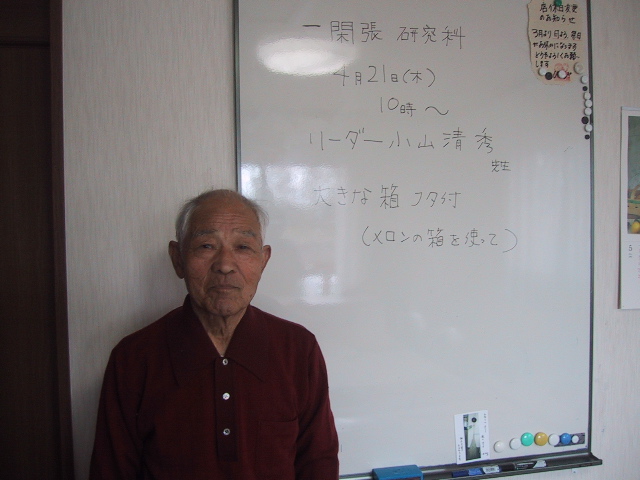 一閑張 研究科
4月21日(木)
10時〜
リーダー小山清秀
先生
大きな箱 フタ付
(メロンの箱を使って)
店休日変更
のお知らせ
3月より